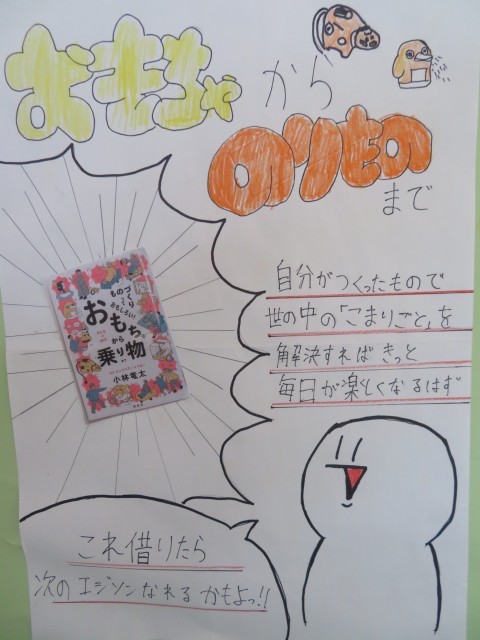 おもちゃ
から
のりもの
まで
ものづくり
って
おもしろい!
おもちゃ
から
乗り物
まで
小林竜太
自分がつくったもので
世の中の「こまりごと」を
解決すればきっと
毎日が楽しくなるはず
これ借りたら
次のエジソンなれるかもよっ!!